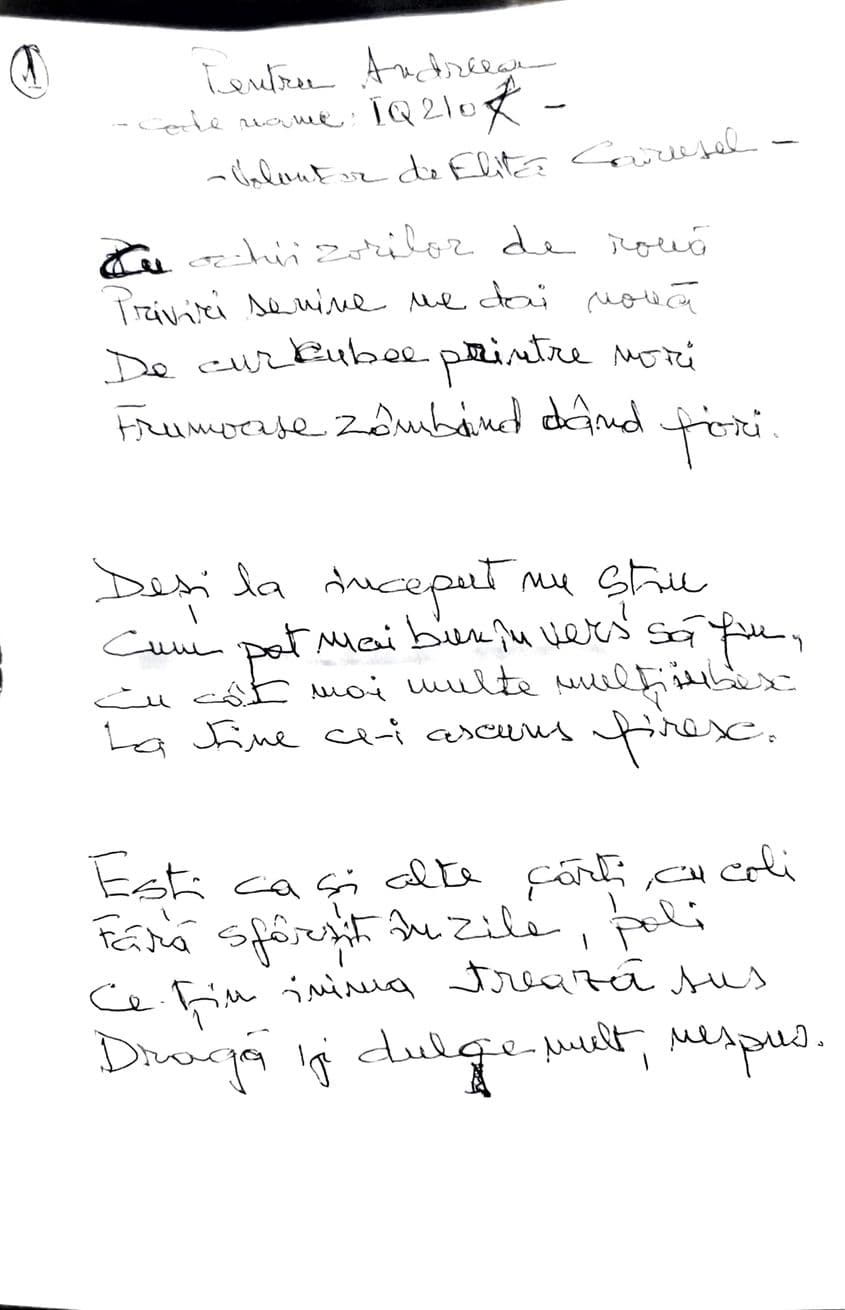 1
Pentru Andreea
- Code name: IQ210 -
- Voluntar de Elită Carusel -
Cu ochii zorilor de rouă
Priviri senine ne dai nouă
De curcubee printre nori
Frumoase zâmbând dând fiori.
Deși la început nu știu
Cum pot mai bine în vers să fiu,
Cu cât mai multe mulți iubesc
La tine ce-i ascuns firesc.
Ești ca și alte cărți, cu coli
Fără sfârșit în zile, poli
Ce țin inima trează sus
Dragă și dulce mult, nespus.